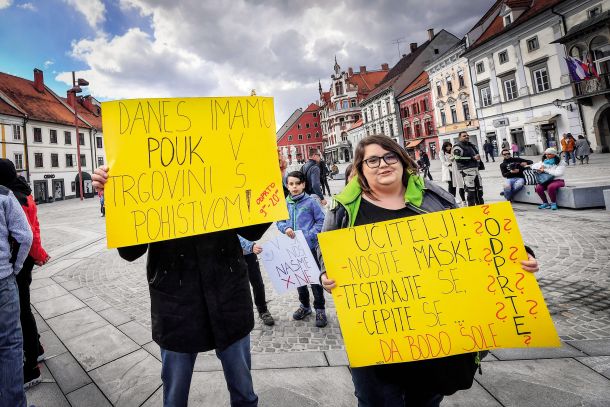 DANES IMAMO
POUK V
TRGOVINI S
POHIŠTVOM!
ODPRTO
9⁰⁰-20⁰⁰
NASME
X NE
UČITELJI:
-NOSITE MASKE
-TESTIRAJTE SE
-CEPITE SE...
"DA BODO ŠOLE
ODPRTE
? ? ? ? ? ? ? ?